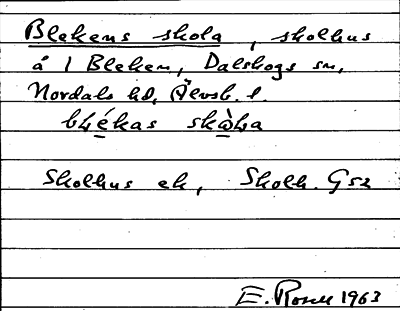 Blekens skola, skolhus
å 1 Bleken, Dalskogs sn,
Nordals hd, Älvsb. l.
blékas skò̱la
Skolhus ek, Skolh. G52
E. Rosell 1963